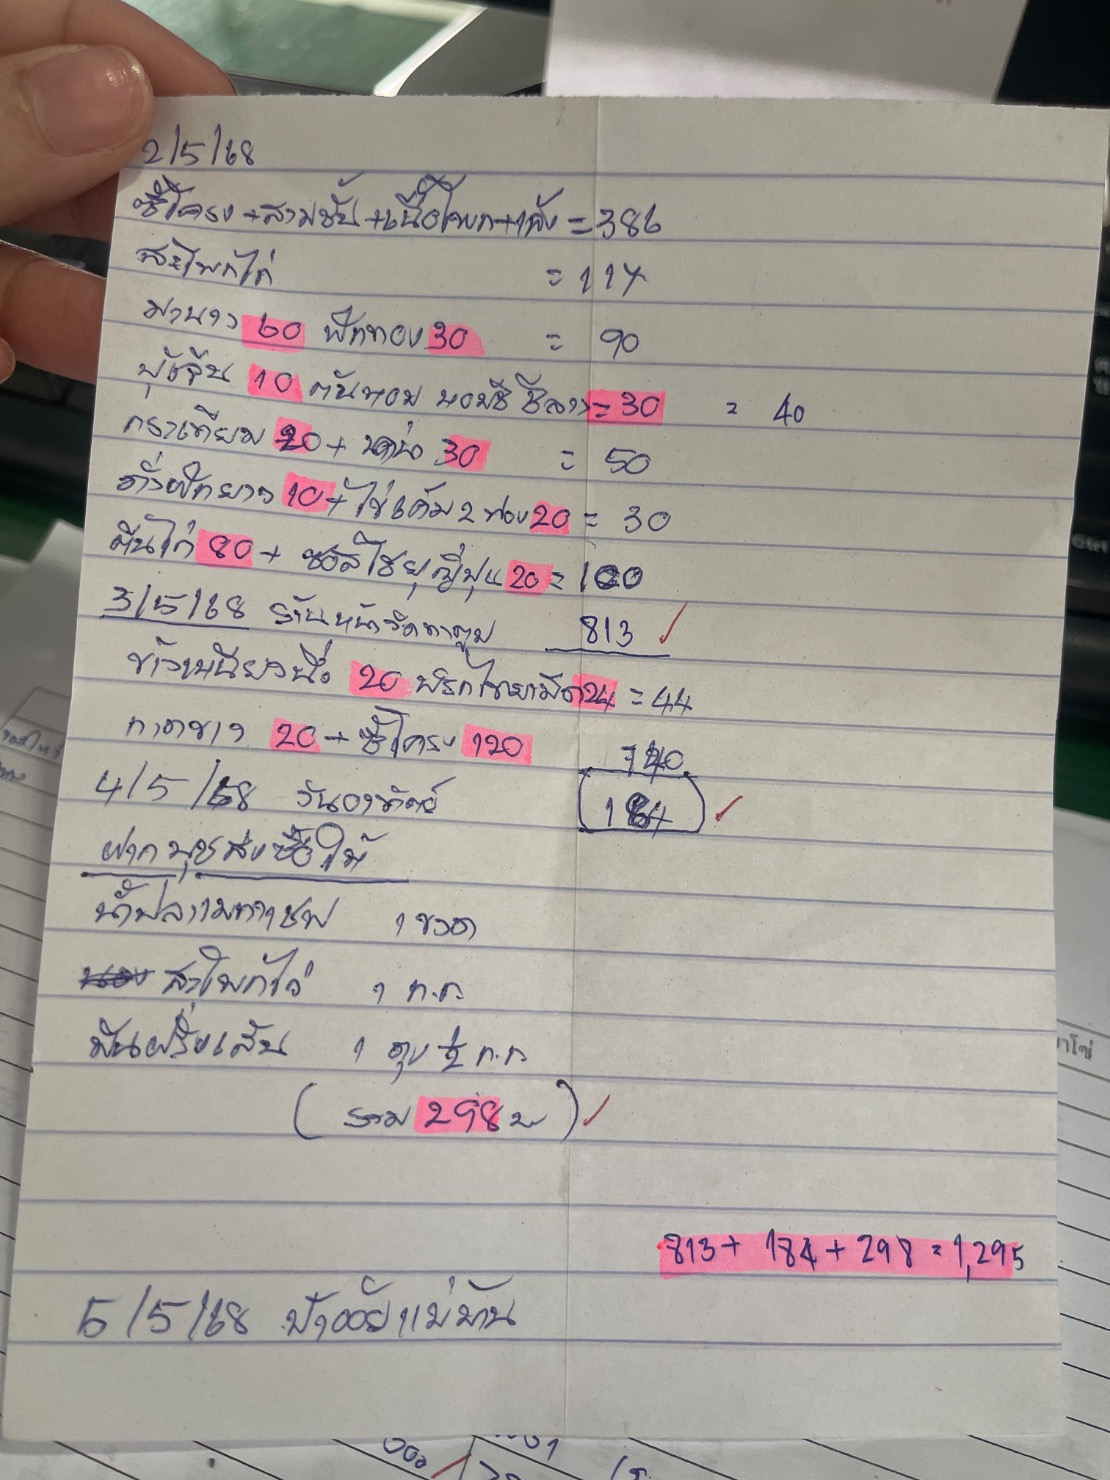 2/5/68
ซี่โครง+สามชั้น+เนื้อโพก+1คั้ง = 386
สะโพกไก่ = 117
มะนาว 60 ฟักทอง 30 = 90
พุ้ยจีน 10 ต้นหอม หอมชี ชีลาว = 30 = 40
กระเทียม 20 + 30 = 50
ถั่วฝักยาว 10 + ไข่เค็ม 2 ฟอง 20 = 30
ตีนไก่ 80 + ซอสโชยุญี่ปุ่น 20 = 100
3/5/68 ร้านหน้าวัดตาตูม 813
ข้าวเหนียวนึ่ง 20 พริกไทยเม็ด 24 = 44
กาดขาว 20 + ซี่โครง 120 140
4/5/68 วันอาทิตย์ 184
ฝากนุชส่งซื้อให้
น้ำปลาเมกาเชฟ 1 ขวด
สะโพกไก่ 1 ก.ก.
มันฝรั่งเส้น 1 ถุง ½ ก.ก.
(รวม 298 บ)
813 + 184 + 298 = 1,295
5/5/68 ป้าออยแม่บ้าน